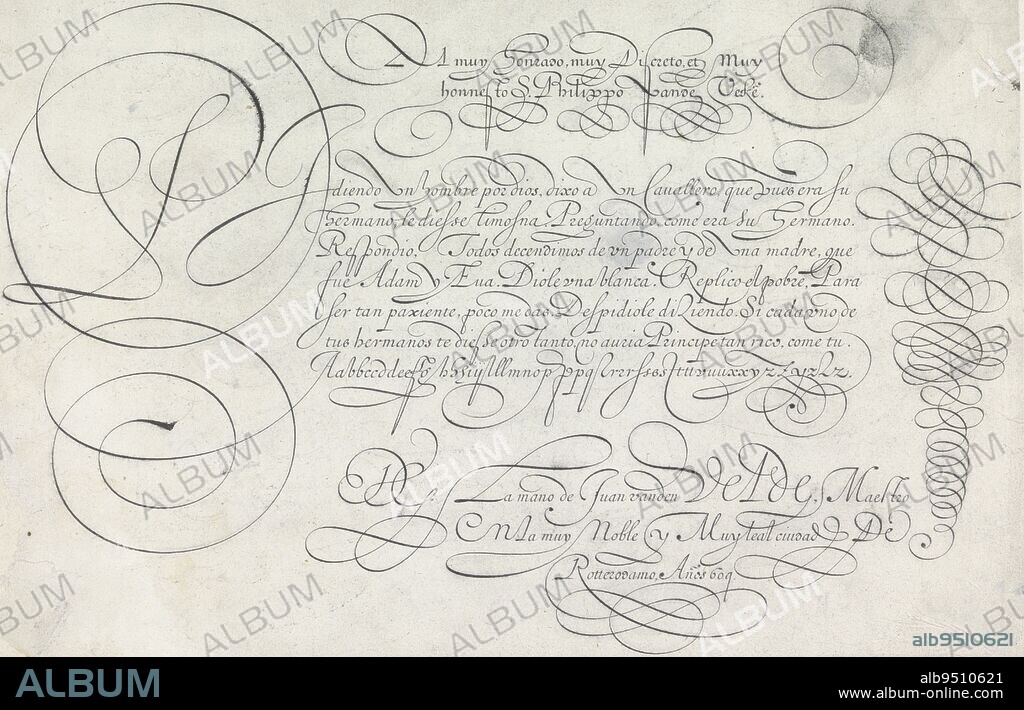 Al muy Honrado, muy Discreto, et Muy
honnesto S. Philippo vande
Pidiendo Un hombre por dios, dixo a Un Cavallero, que pues era su
hermano, le diesse limosna. Preguntando, come era su Hermano.
Respondio. Todos decendimos de vn padre y de Una madre, que
fue Adam y Eua. Diole vna blanca. Replico el pobre, Para
ser tan paxiente, poco me das. Despidiole diziendo. Si cada vno de
tus hermanos te diesse otro tanto, no auria Principe tan rico, come tu.
De La mano de Juan vanden Velde, Maestro
En La muy Noble y Muy leal ciudad De
Rotterodamo, Años 609
ALBUM
alb9510621
ALBUM
alb9510621
www.album-online.com